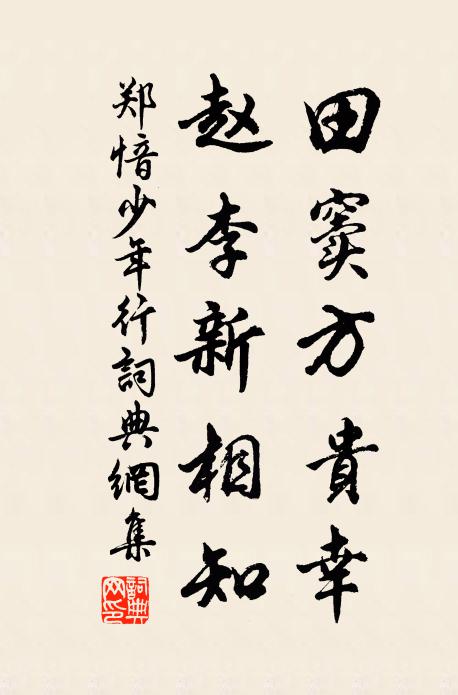 田窦方貴幸
赵李新相知
郑愔少年行詞典網集
詞典網印